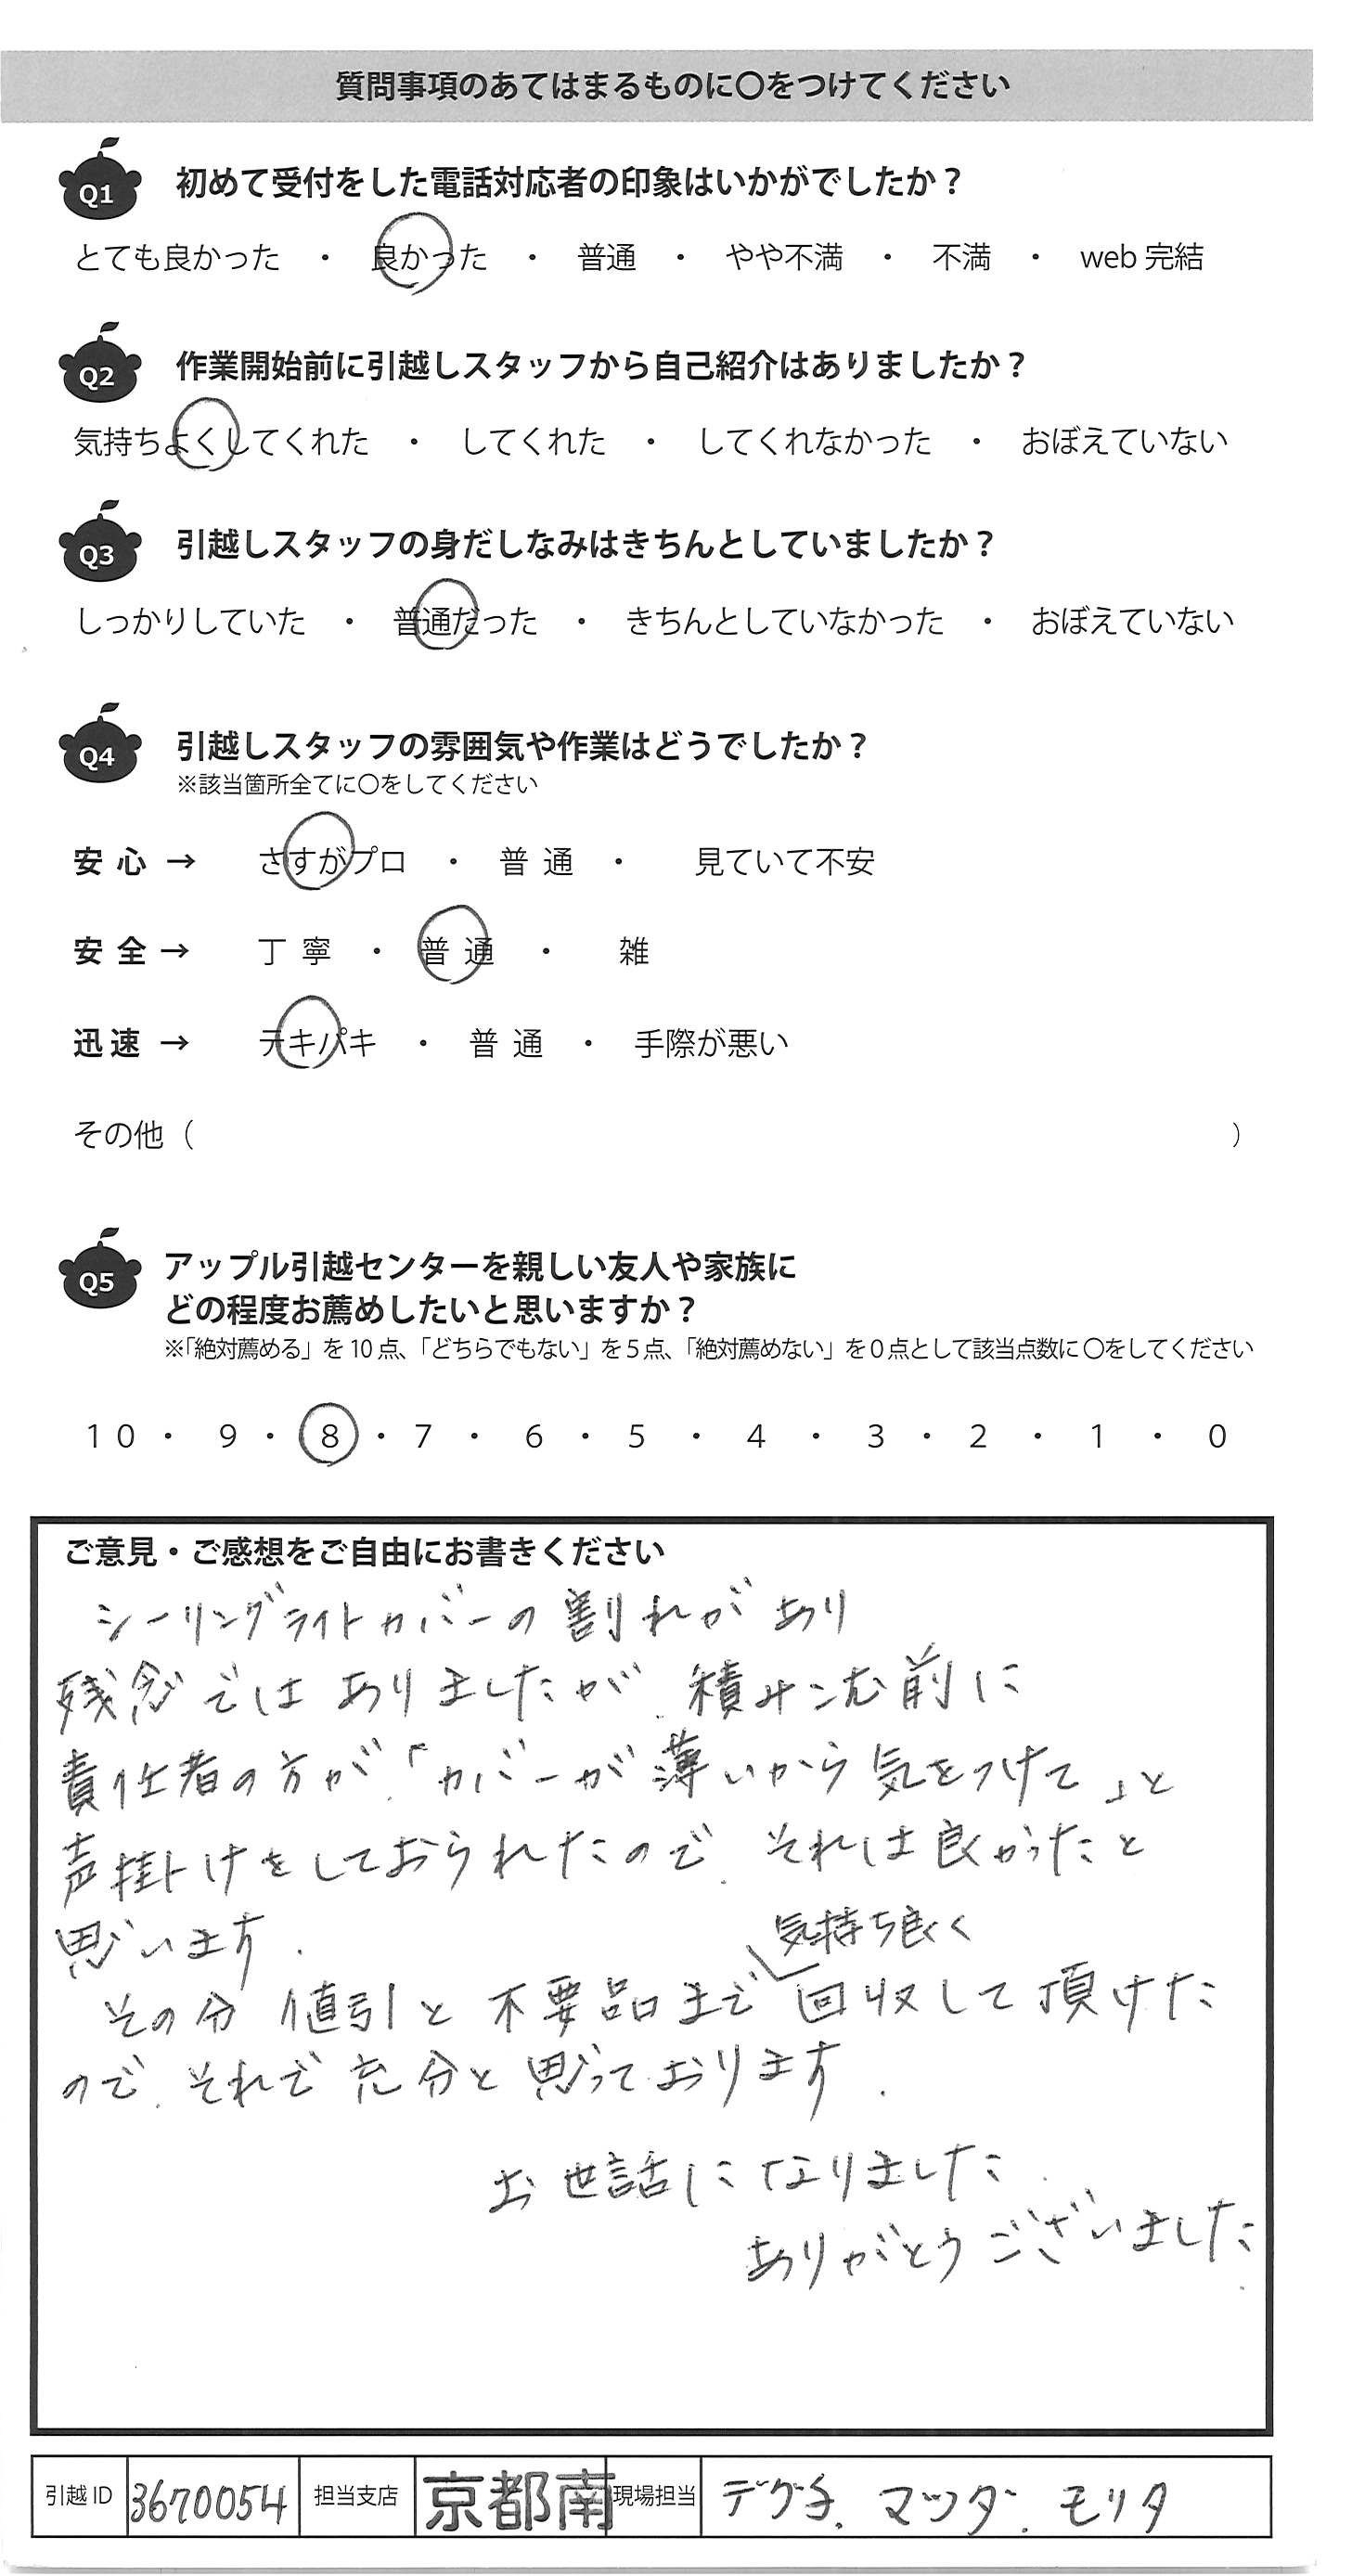 質問事項のあてはまるものに〇をつけてください
Q1 初めて受付をした電話対応者の印象はいかがでしたか？
とても良かった ・ 良かった ・ 普通 ・ やや不満 ・ 不満 ・ web 完結
Q2 作業開始前に引越しスタッフから自己紹介はありましたか？
気持ちよくしてくれた ・ してくれた ・ してくれなかった ・ おぼえていない
Q3 引越しスタッフの身だしなみはきちんとしていましたか？
しっかりしていた ・ 普通だった ・ きちんとしていなかった ・ おぼえていない
Q4 引越しスタッフの雰囲気や作業はどうでしたか？
※該当箇所全てに〇をしてください
安心 → さすがプロ ・ 普通 ・ 見ていて不安
安全 → 丁寧 ・ 普通 ・ 雑
迅速 → テキパキ ・ 普通 ・ 手際が悪い
その他（ ）
Q5 アップル引越センターを親しい友人や家族に
どの程度お薦めしたいと思いますか？
※「絶対薦める」を 10 点、「どちらでもない」を 5 点、「絶対薦めない」を 0 点として該当点数に 〇をしてください
10 ・ 9 ・ 8 ・ 7 ・ 6 ・ 5 ・ 4 ・ 3 ・ 2 ・ 1 ・ 0
ご意見・ご感想をご自由にお書きください
シーリングライトカバーの割れがあり
残念ではありましたが、積みこむ前に
責任者の方が、「カバーが薄いから気をつけて」と
声掛けをしておられたので、それは良かったと
思います．
気持ち良く
その分 値引と不要品まで回収して頂けた
ので、それで充分と思っております．
お世話になりました．
ありがとうございました．
引越 ID 3670054 担当支店 京都南 現場担当 デグチ、マツダ、モリタ